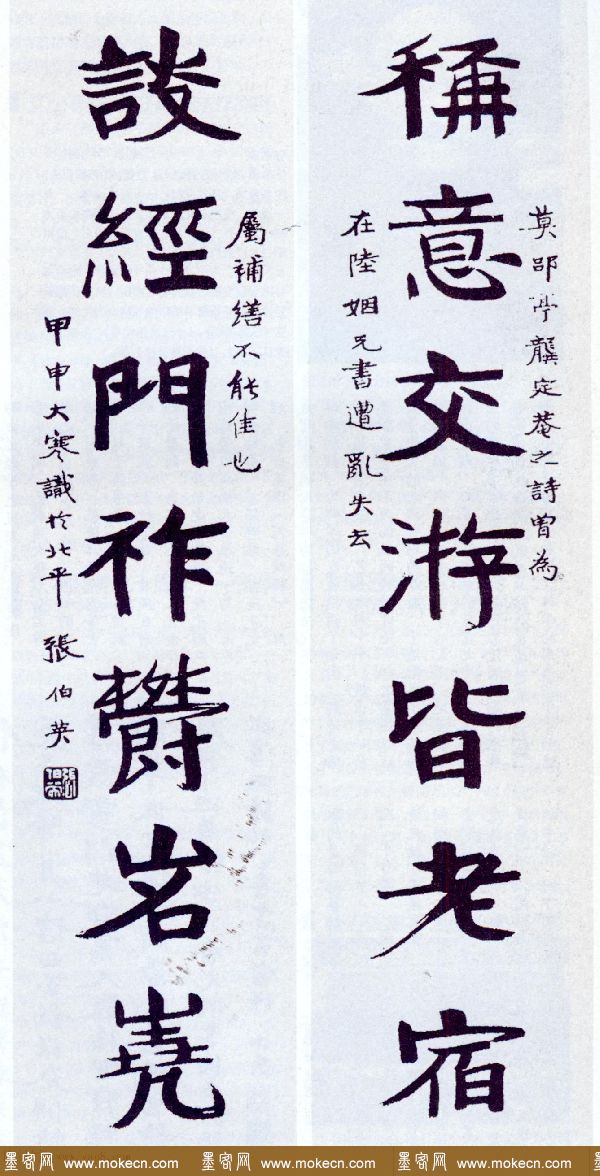 莫郘亭龔定菴之詩曾為
稱意交游皆老宿
在陸姻兄書遭亂失去
屬補繕不能佳也
談經門祚鬱岧嶤
甲申大寒識於北平 張伯英
墨客网 www.mokecn.com 墨客网 www.mokecn.com 墨客网 www.mokecn.com 墨客网 www.mokecn.com